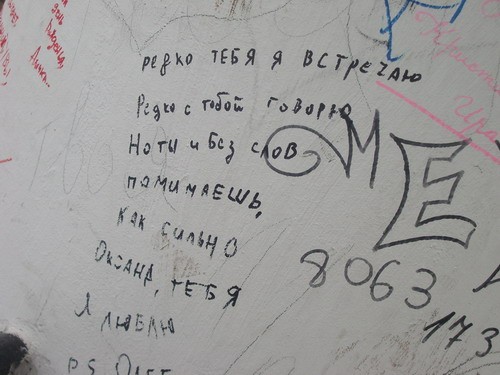 редко ТЕБЯ Я ВСТРЕЧАЮ
Редко с тобой говорю
Но ты и без слов
понимаешь,
как сильно
Оксана, ТЕБЯ
Я люблю
P.S. Олег
МЕ
8063
173